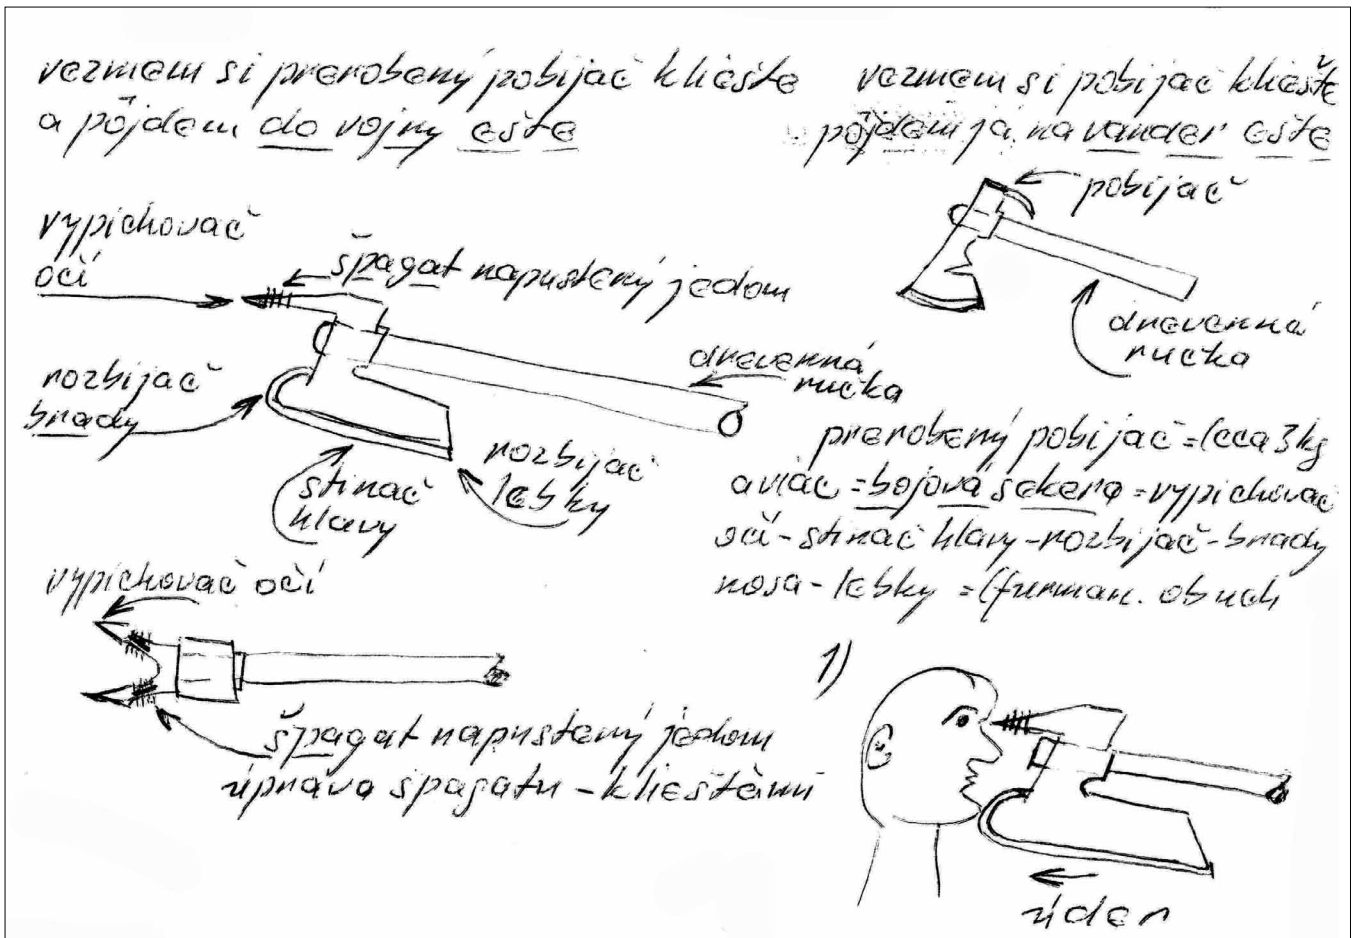 vezmem si prerobený pobijač kliešte
a pôjdem do vojny ešte
vezmem si pobijač kliešte
pôjdem ja na vander ešte
pobijač
drevenná
ručka
vypichovač
očí
špagat napustený jedom
rozbijač
brady
drevenná
ručka
stinač
hlavy
rozbijač
lebky
prerobený pobijač = (cca 3 kg
aviac = bojová sekera = vypichovač
očí - stinač hlavy - rozbijač - brady
nosa - lebky = (furman. obuch
vypichovač očí
špagat napustený jedom
úprava špagatu - klieštami
1)
úder